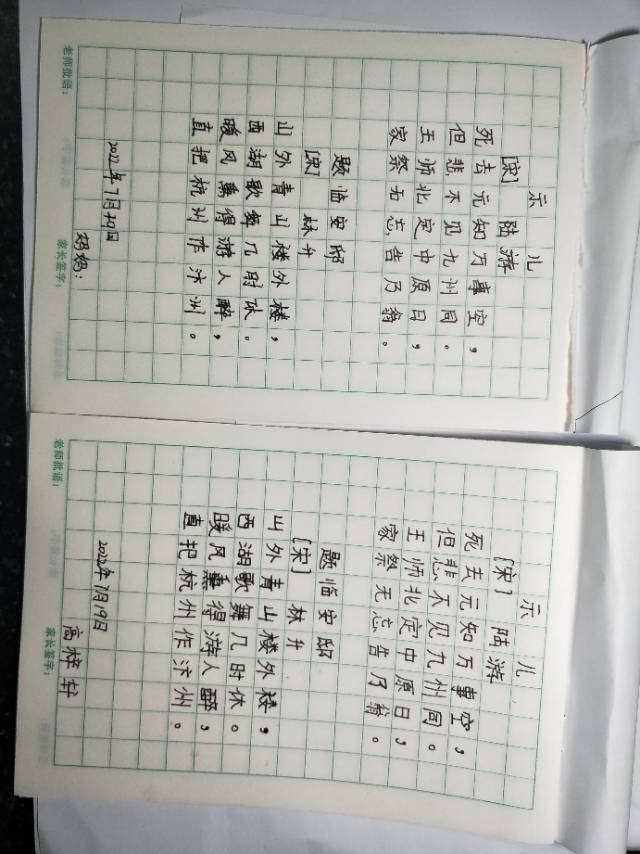 示 儿
[宋] 陆游
死去元知万事空，
但悲不见九州同。
王师北定中原日，
家祭 忘告乃翁。
题临安邸
[宋] 林升
山外青山楼外楼，
西湖歌舞几时休。
暖风熏得游人醉，
直把杭州作汴州。
2022年7月19日
妈妈：
老师批语： 家长签字：
示 儿
[宋] 陆游
死去元知万事空，
但悲不见九州同。
王师北定中原日，
家祭无忘告乃翁。
题临安邸
[宋] 林升
山外青山楼外楼，
西湖歌舞几时休。
暖风熏得游人醉，
直把杭州作汴州。
2022年7月19日
高梓轩
老师批语： 家长签字：